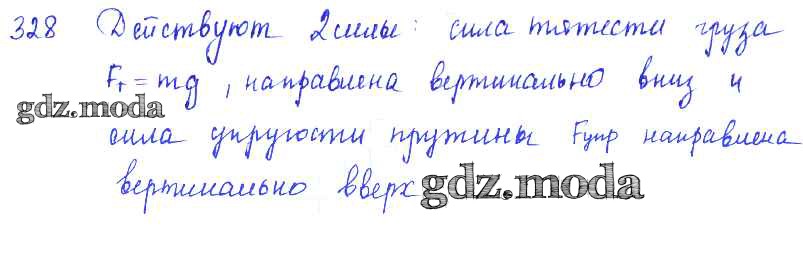 328 Действуют 2 силы: сила тяжести груза
Fт = mg, направлена вертикально вниз и
gdz.moda
сила упругости пружины Fупр направлена
вертикально вверх gdz.moda